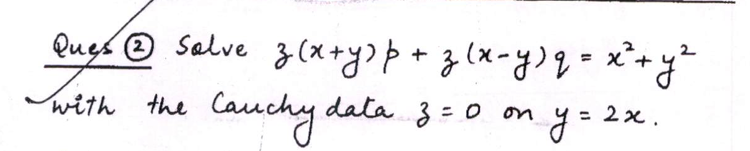 Ques ② Solve z(x+y)p + z(x-y)q = x²+y²
with the Cauchy data z = 0 on y = 2x.